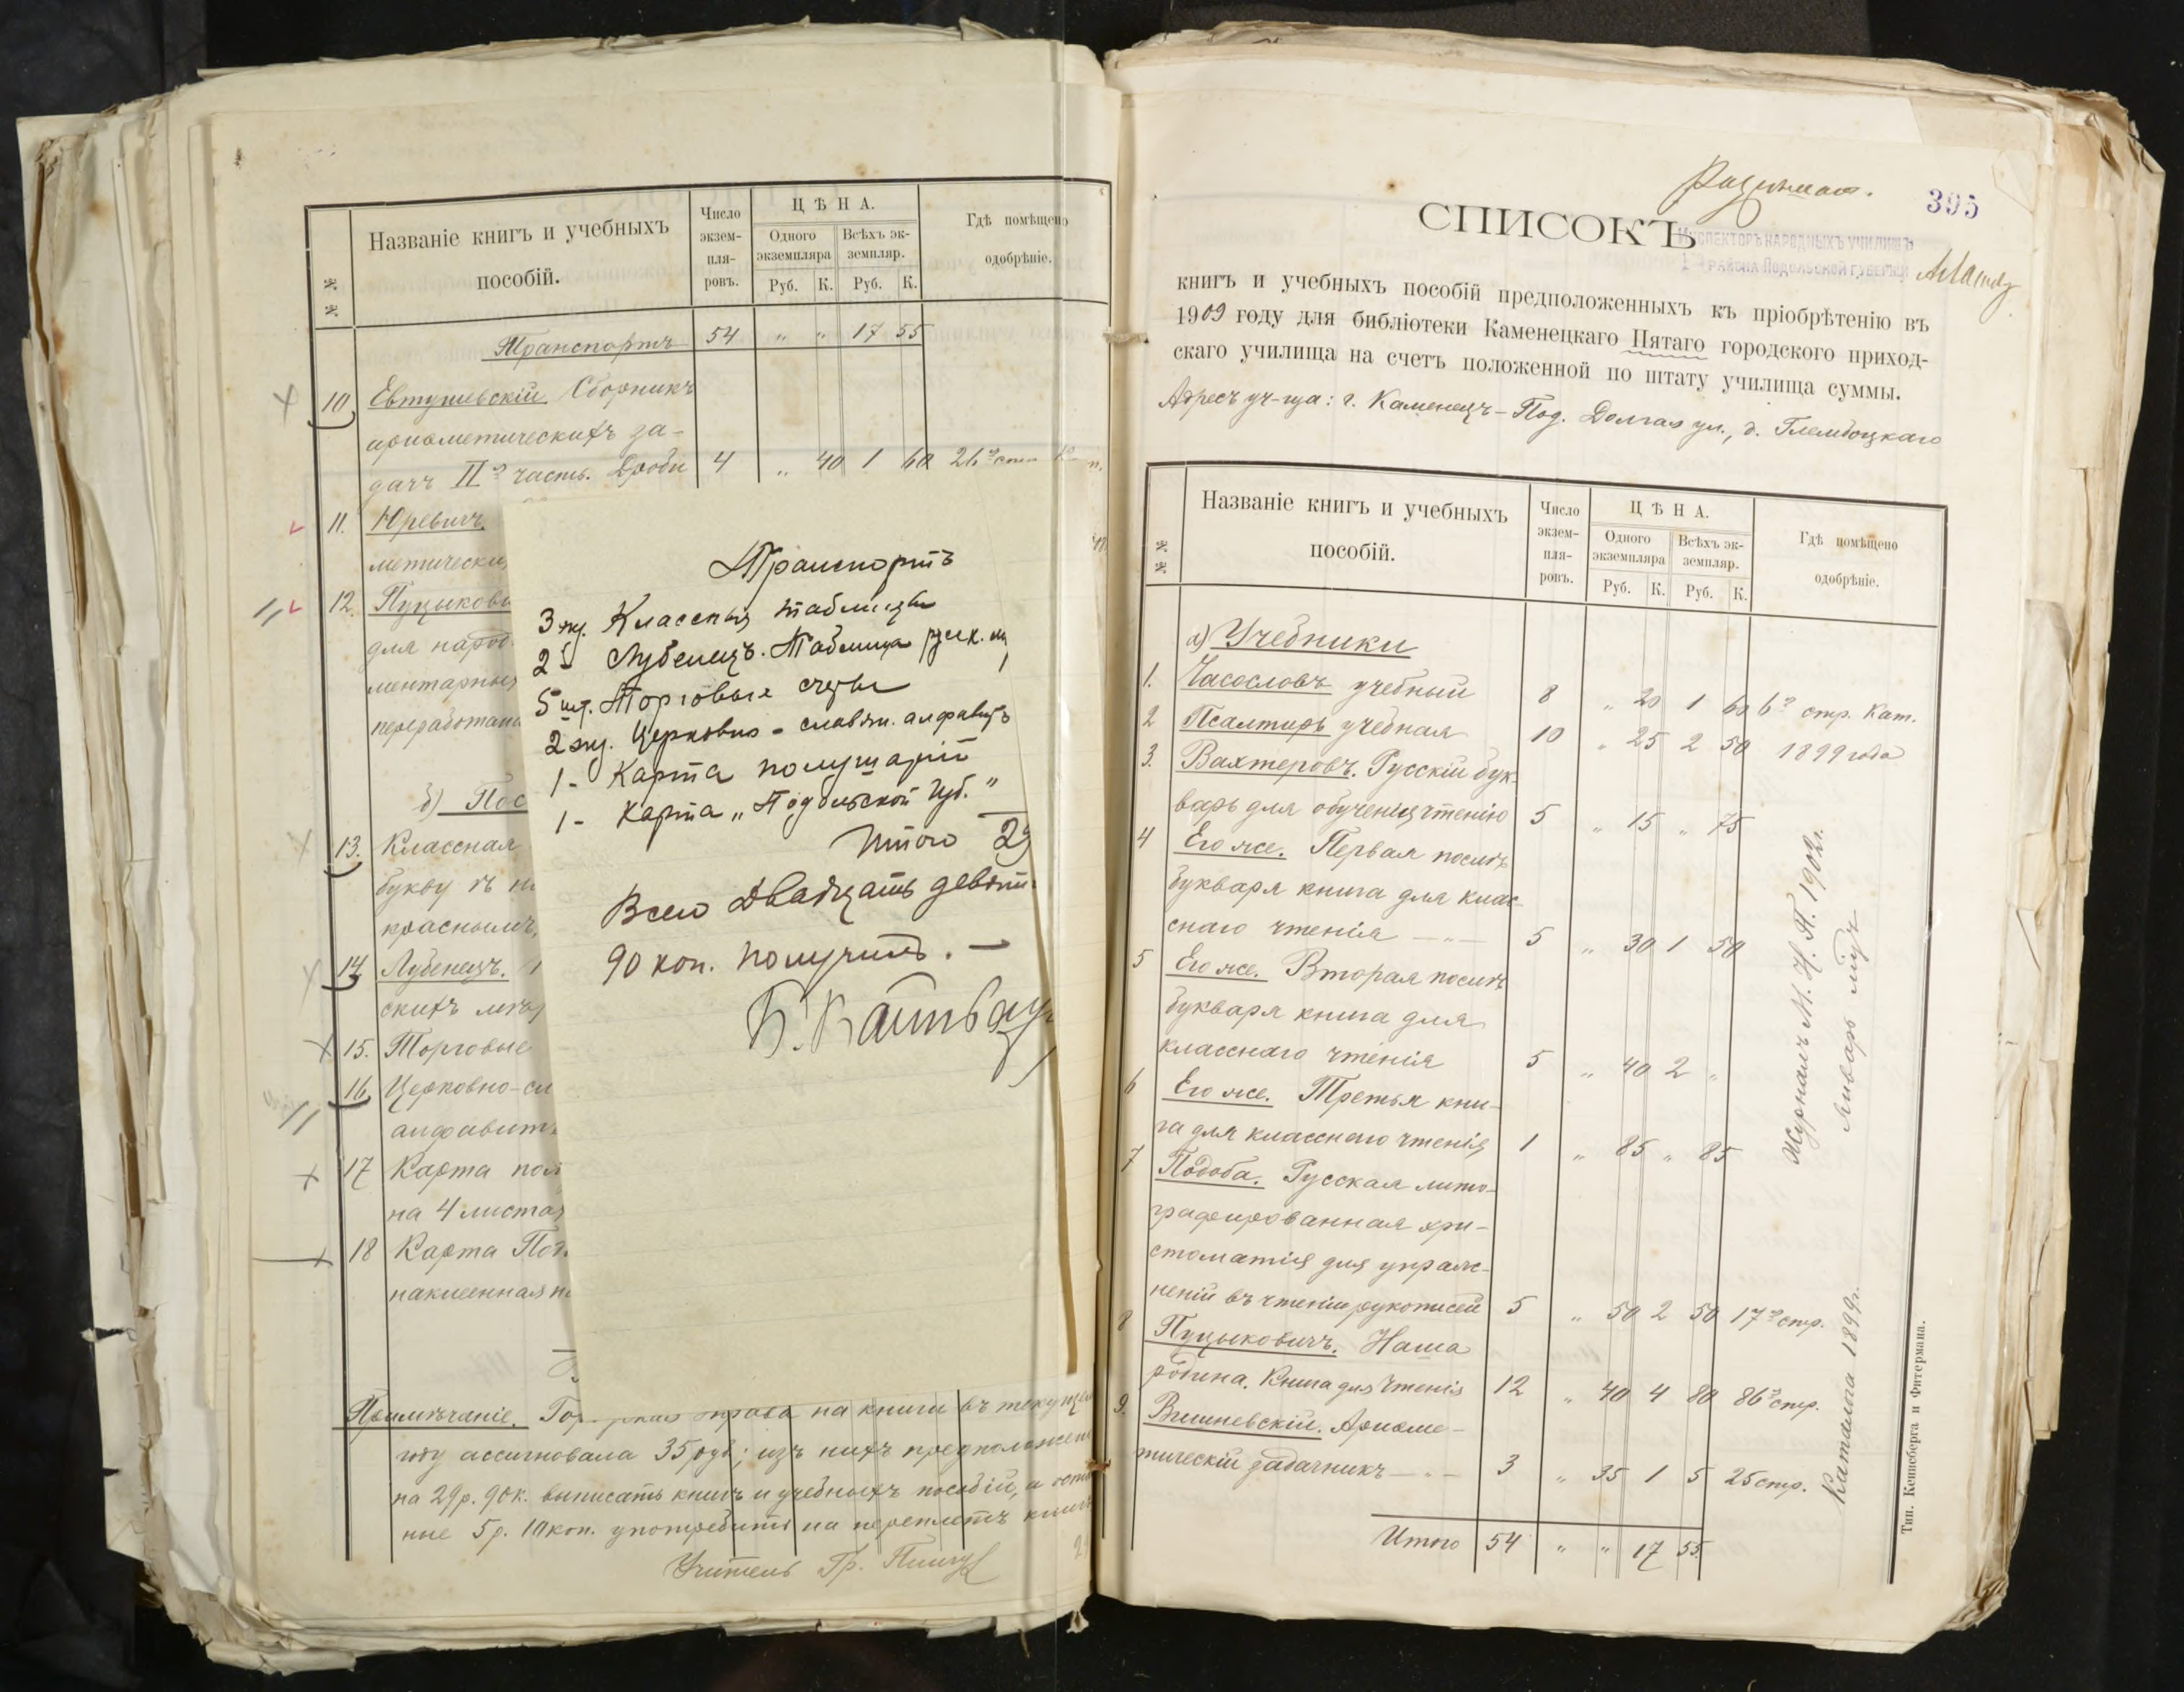 Названіе книгъ и учебныхъ пособій.
№ №
Число экзем-пля-ровъ.
ЦѢНА.
Одного экземпляра
Всѣхъ эк-земпляр.
Руб. К. Руб. К.
Гдѣ помѣщено одобрѣніе.
Транспортъ 54 „ „ 17 55
10 Евтушевскій. Сборникъ
ариѳметическихъ за-
дачъ IIя часть. Дроби 4 „ 40 1 60 26я стр.
11. Юревичъ.
метически
12. Пуцыкови
для народ
ментарныя
переработанн
б) Пос
13. Классная
букву къ
краснымъ,
14 Лубенецъ.
скихъ мѣр
15. Торговые
16 Церковно-сл
алфавитъ
17 Карта пол
на 4 листах
18 Карта Под
наклеенная на
Транспортъ
3 экз. Классныя таблицы
2 - Лубенецъ. Таблица русск. м
5 шт. Торговые счеты
2 экз. Церковно-славян. алфавитъ
1 - Карта полушарій
1 - Карта „Подольской губ.“
Итого 29
Всего двадцать девять
90 коп. получилъ. —
Примѣчаніе. Гор управа на книги въ текущем
году ассигновала 35 руб; изъ нихъ предположено
на 29 р. 90 к. выписать книгъ и учебныхъ пособій, а осталь
ные 5 р. 10 коп. употребить на переплетъ книгъ
Учитель Гр.
395
СПИСОКЪ
ИНСПЕКТОРЪ НАРОДНЫХЪ УЧИЛИЩЪ
1го РАЙОНА ПОДОЛЬСКОЙ ГУБЕРНІИ
книгъ и учебныхъ пособій предположенныхъ къ пріобрѣтенію въ
1909 году для библіотеки Каменецкаго Пятаго городского приход-
скаго училища на счетъ положенной по штату училища суммы.
Адресъ уч-ща: г. Каменецъ-Под. Долгая ул., д. Глембоцкаго
Названіе книгъ и учебныхъ пособій.
№ №
Число экзем-пля-ровъ.
ЦѢНА.
Одного экземпляра
Всѣхъ эк-земпляр.
Руб. К. Руб. К.
Гдѣ помѣщено одобрѣніе.
а) Учебники
1. Часословъ учебный 8 „ 20 1 60 6я стр. Кат.
2 Псалтирь учебная 10 „ 25 2 50 1899 года
3. Вахтеровъ. Русскій бук-
варь для обученія чтенію 5 „ 15 „ 75
4 Его же. Первая послѣ
букваря книга для клас-
снаго чтенія — „ — 5 „ 30 1 50
5 Его же. Вторая послѣ
букваря книга для
класснаго чтенія 5 „ 40 2 „
6 Его же. Третья кни-
га для класснаго чтенія 1 „ 85 „ 85
Журналъ М. Н. П. 1902 г.
Январь
7 Подоба. Русская лито-
графированная хри-
стоматія для упраж-
неній въ чтеніи рукописей 5 „ 50 2 50 17я стр.
8 Пуцыковичъ. Наша
родина. Книга для чтенія 12 „ 40 4 80 86я стр.
9. Вишневскій. Ариѳме-
тическій задачникъ — „ — 3 „ 35 1 5 25 стр.
Каталога 1899 г.
Итого 54 „ „ 17 55
Тип. Кенисберга и Фитермана.